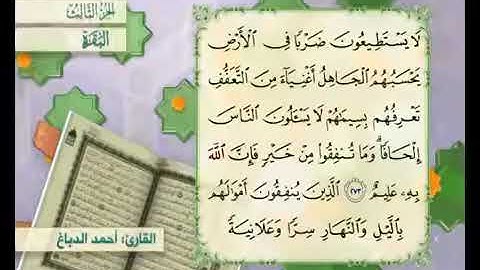 الجزء الثالث
البقرة
لَا يَسْتَطِيعُونَ ضَرْبًا فِى ٱلْأَرْضِ
يَحْسَبُهُمُ ٱلْجَاهِلُ أَغْنِيَآءَ مِنَ ٱلتَّعَفُّفِ
تَعْرِفُهُم بِسِيمَٰهُمْ لَا يَسْـَٔلُونَ ٱلنَّاسَ
إِلْحَافًا ۗ وَمَا تُنفِقُوا۟ مِنْ خَيْرٍ فَإِنَّ ٱللَّهَ
بِهِۦ عَلِيمٌ ﴿٢٧٣﴾ ٱلَّذِينَ يُنفِقُونَ أَمْوَٰلَهُم
بِٱلَّيْلِ وَٱلنَّهَارِ سِرًّا وَعَلَانِيَةً
القارئ: أحمد الدباغ